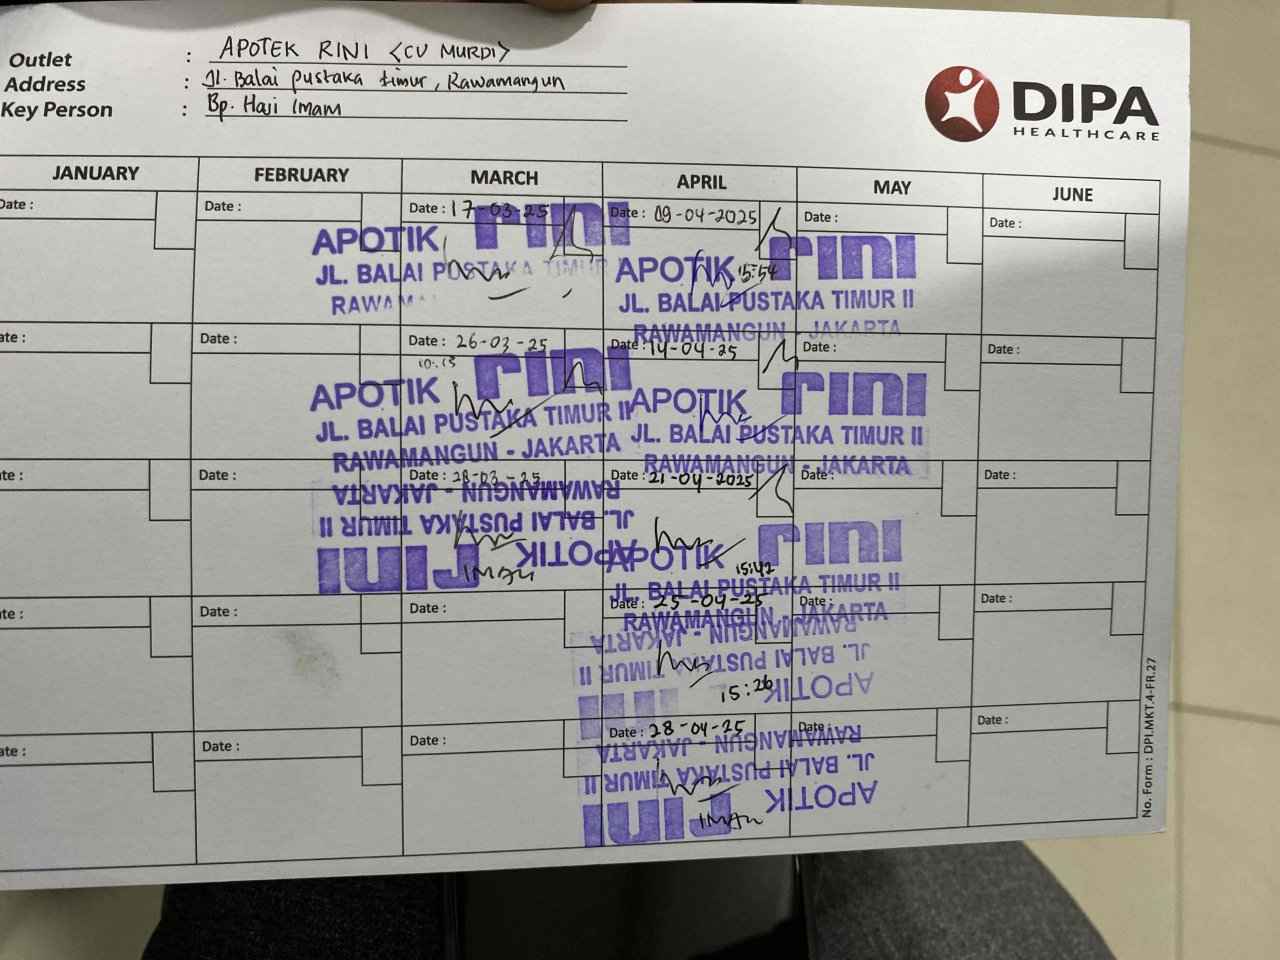 Outlet : APOTEK RINI <CV MURDI>
Address : Jl. Balai pustaka timur, Rawamangun
Key Person : Bp. Haji Imam
DIPA
HEALTHCARE
JANUARY FEBRUARY MARCH APRIL MAY JUNE
Date : Date : Date : 17-03-25 Date : 09-04-2025 Date : Date :
APOTIK rini
JL. BALAI PUSTAKA TIMUR
RAWAM
APOTIK rini 15:54
JL. BALAI PUSTAKA TIMUR II
RAWAMANGUN - JAKARTA
ate : Date : Date : 26-03-25 Date : 14-04-25 Date : Date :
10:15
APOTIK rini
JL. BALAI PUSTAKA TIMUR II
RAWAMANGUN - JAKARTA
APOTIK rini
JL. BALAI PUSTAKA TIMUR II
RAWAMANGUN - JAKARTA
te : Date : Date : 28-03-25 Date : 21-04-2025 Date : Date :
APOTIK rini
JL. BALAI PUSTAKA TIMUR II
RAWAMANGUN - JAKARTA
IMAM
APOTIK rini
15:42
JL. BALAI PUSTAKA TIMUR II
RAWAMANGUN - JAKARTA
te : Date : Date : Date : 25-04-25 Date : Date :
APOTIK rini
JL. BALAI PUSTAKA TIMUR II
RAWAMANGUN - JAKARTA
15:26
ate : Date : Date : Date : 28-04-25 Date : Date :
APOTIK rini
JL. BALAI PUSTAKA TIMUR II
RAWAMANGUN - JAKARTA
IMAM
No. Form : DPI.MKT.4-FR.27